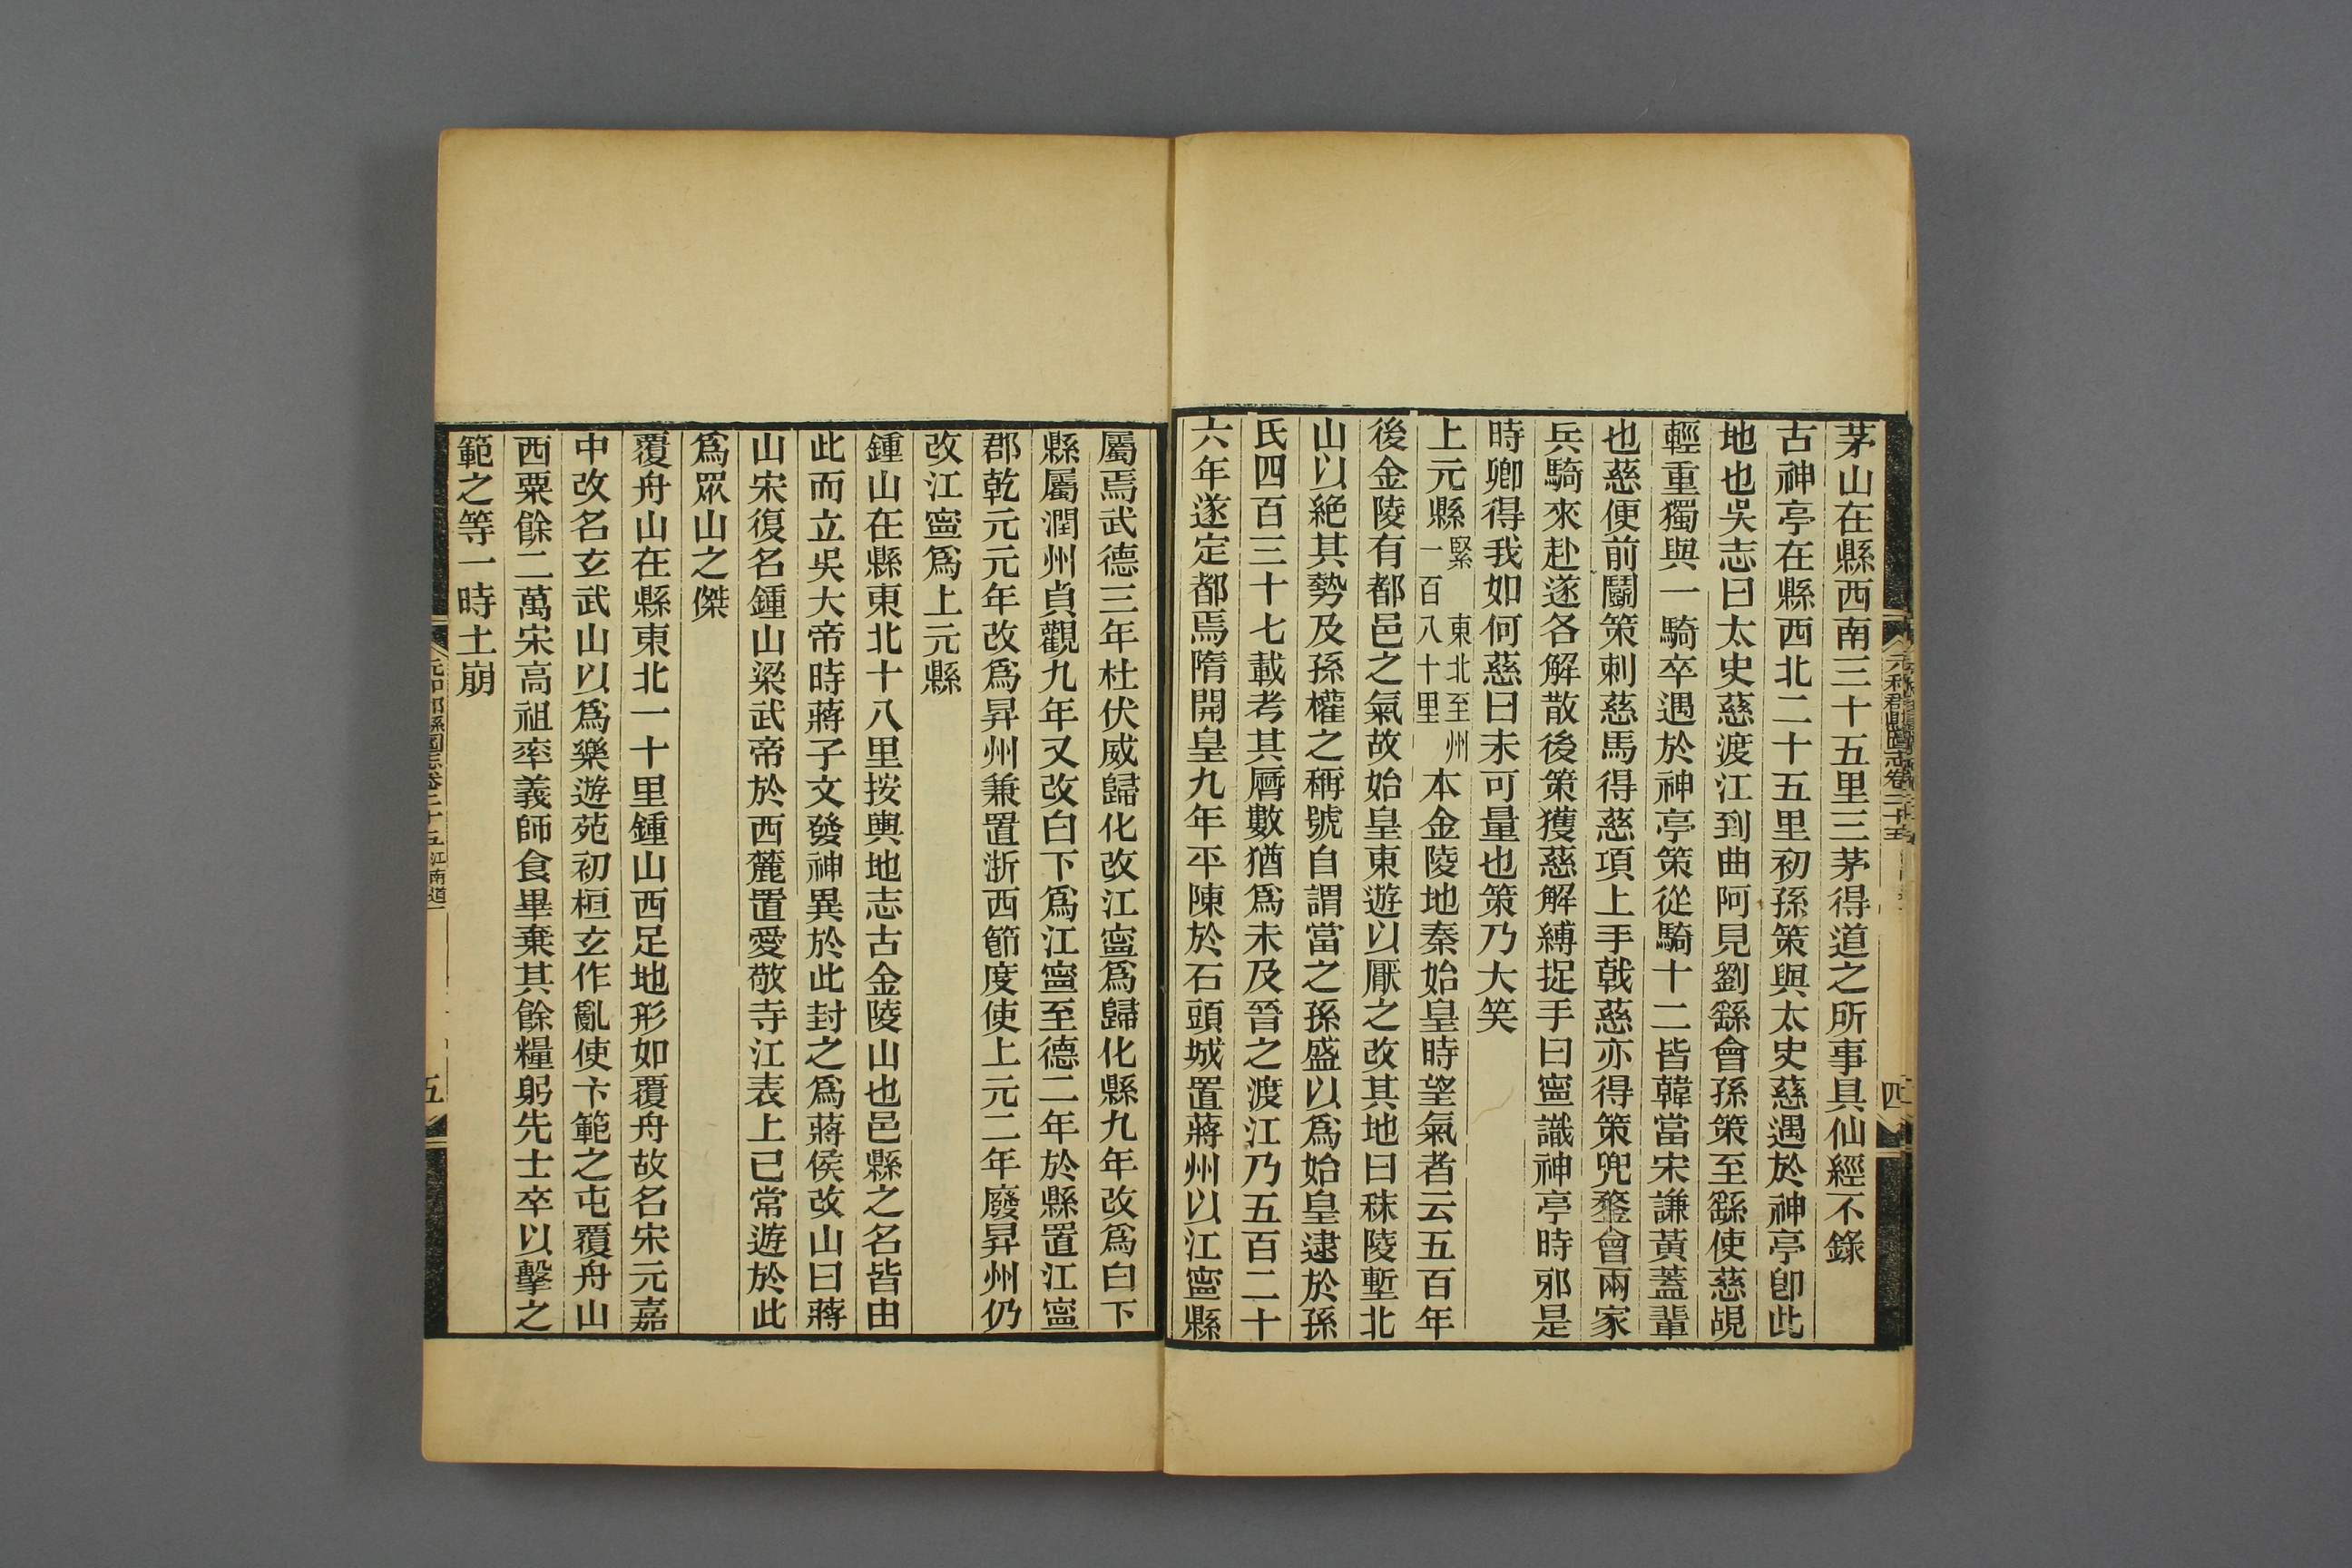 茅山在縣西南三十五里三茅得道之所事具仙經不錄
古神亭在縣西北二十五里初孫策與太史慈遇於神亭卽此
地也吳志曰太史慈渡江到曲阿見劉繇會孫策至繇使慈覘
輕重獨與一騎卒遇於神亭策從騎十二皆韓當宋謙黃蓋輩
也慈便前鬭策刺慈馬得慈項上手戟慈亦得策兜鍪會兩家
兵騎來赴遂各解散後策獲慈解縛捉手曰寧識神亭時邪是
時卿得我如何慈曰未可量也策乃大笑
上元縣緊 東北至州一百八十里 本金陵地秦始皇時望氣者云五百年
後金陵有都邑之氣故始皇東遊以厭之改其地曰秣陵塹北
山以絕其勢及孫權之稱號自謂當之孫盛以爲始皇逮於孫
氏四百三十七載考其曆數猶爲未及晉之渡江乃五百二十
六年遂定都焉隋開皇九年平陳於石頭城置蔣州以江寧縣
元和郡縣圖志卷二十五
四
屬焉武德三年杜伏威歸化改江寧爲歸化縣九年改爲白下
縣屬潤州貞觀九年又改白下爲江寧至德二年於縣置江寧
郡乾元元年改爲昇州兼置浙西節度使上元二年廢昇州仍
改江寧爲上元縣
鍾山在縣東北十八里按輿地志古金陵山也邑縣之名皆由
此而立吳大帝時蔣子文發神異於此封之爲蔣侯改山曰蔣
山宋復名鍾山梁武帝於西麓置愛敬寺江表上巳常遊於此
爲眾山之傑
覆舟山在縣東北一十里鍾山西足地形如覆舟故名宋元嘉
中改名玄武山以爲樂遊苑初桓玄作亂使卞範之屯覆舟山
西粟餘二萬宋高祖率義師食畢棄其餘糧躬先士卒以擊之
範之等一時土崩
元和郡縣圖志卷二十五 江南道一
五